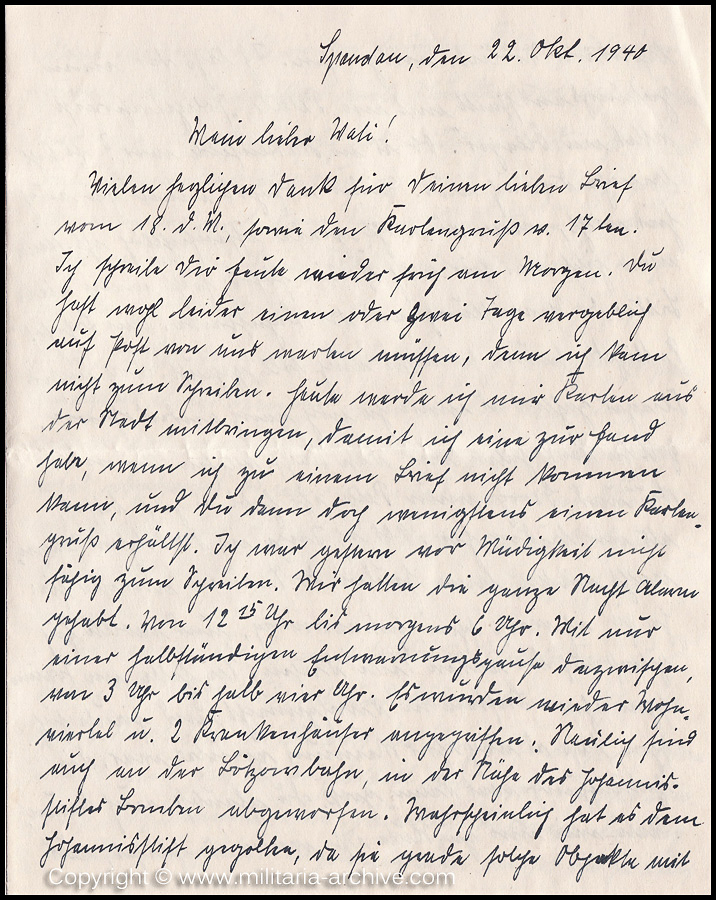 Spandau, den 22. Okt. 1940
Mein lieber Wali!
Vielen herzlichen Dank für Deinen lieben Brief
vom 18. d. M., sowie den Kartengruß v. 17ten.
Ich schreibe Dir heute wieder früh am Morgen. Du
hast wohl leider einen oder zwei Tage vergeblich
auf Post von uns warten müssen, denn ich kam
nicht zum Schreiben. Heute werde ich mir Karten aus
der Stadt mitbringen, damit ich eine zur Hand
habe, wenn ich zu einem Brief nicht kommen
kann, und Du dann doch wenigstens einen Karten-
gruß erhältst. Ich war gestern vor Müdigkeit nicht
fähig zum Schreiben. Wir hatten die ganze Nacht Alarm
gehabt. Von 12 15 Uhr bis morgens 6 Uhr. Mit nur
einer halbstündigen Entwarnungspause dazwischen,
von 3 Uhr bis halb vier Uhr. Es wurden wieder Wohn-
viertel u. 2 Krankenhäuser angegriffen. Neulich sind
auch an der Bötzowbahn, in der Nähe des Johannis-
stiftes Bomben abgeworfen. Wahrscheinlich hat es dem
Johannisstift gegolten, da sie gerade solche Objekte mit
Copyright © www.militaria-archive.com/